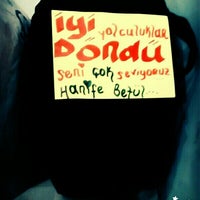 iyi yolculuklar
DÖNDÜ
Seni çok seviyoruz
Hanife Betül...